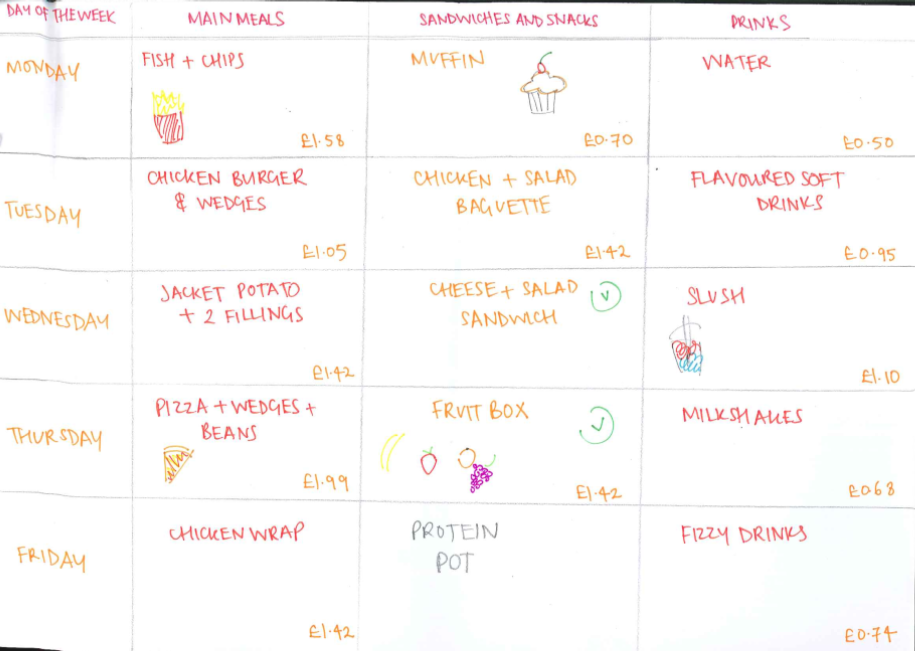 DAY OF THE WEEK
MAIN MEALS
SANDWICHES AND SNACKS
DRINKS
MONDAY
FISH + CHIPS
£1.58
MUFFIN
£0.70
WATER
£0.50
TUESDAY
CHICKEN BURGER
& WEDGES
£1.05
CHICKEN + SALAD
BAGUETTE
£1.42
FLAVOURED SOFT
DRINKS
£0.95
WEDNESDAY
JACKET POTATO
+ 2 FILLINGS
£1.42
CHEESE + SALAD
SANDWICH
V
SLUSH
£1.10
THURSDAY
PIZZA + WEDGES +
BEANS
£1.99
FRUIT BOX
V
£1.42
MILKSHAKES
£0.68
FRIDAY
CHICKEN WRAP
£1.42
PROTEIN
POT
FIZZY DRINKS
£0.74